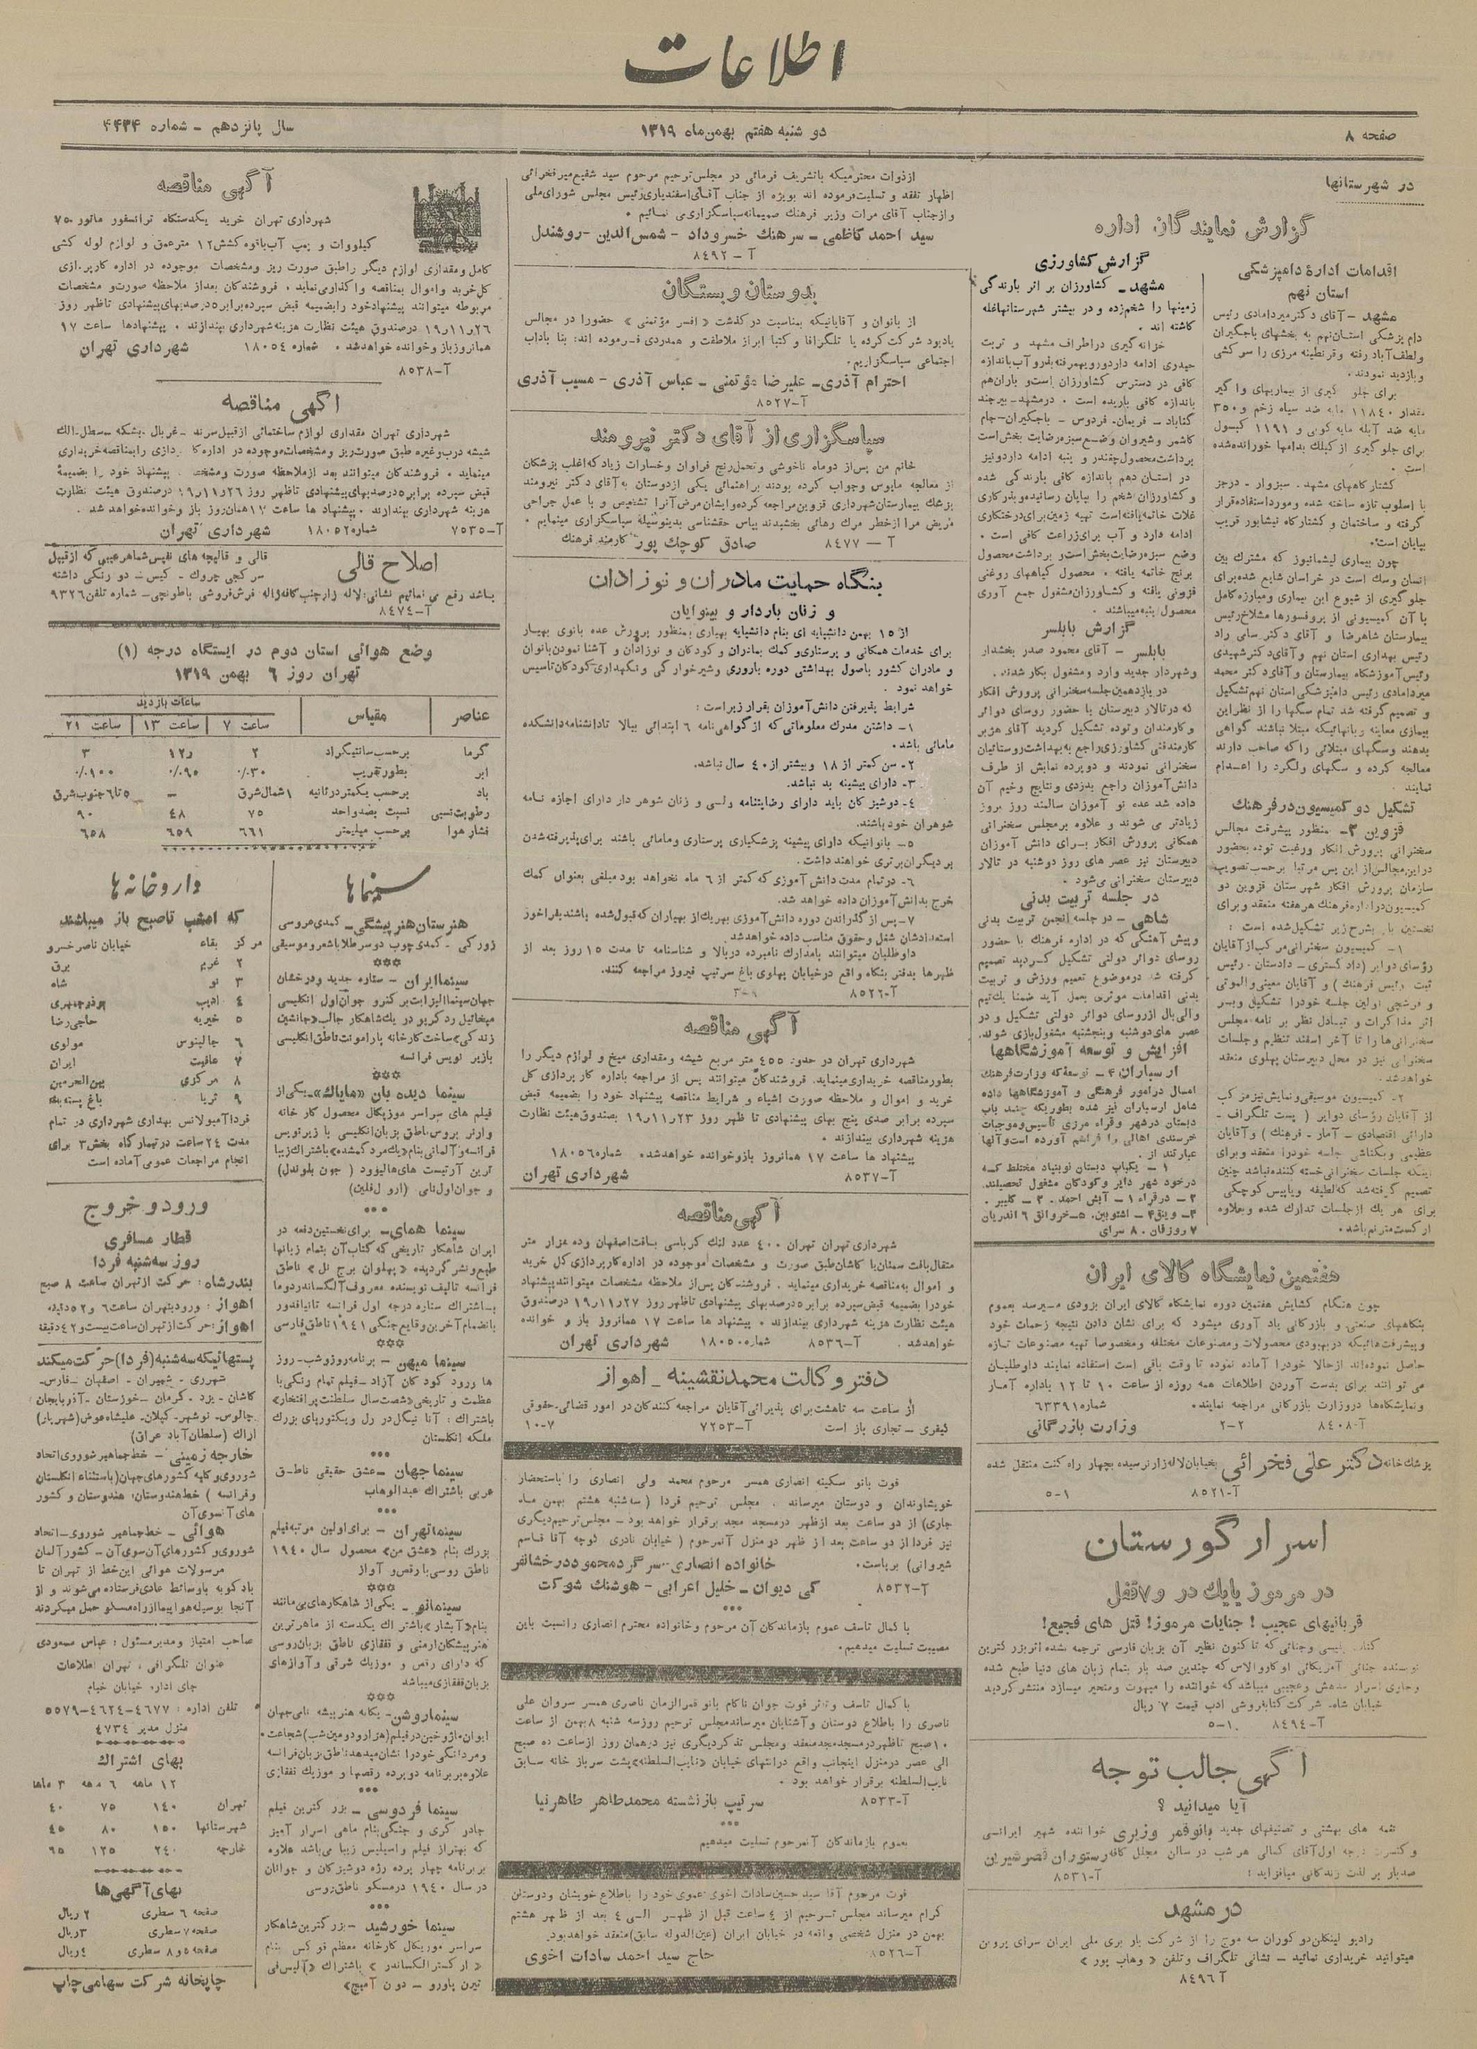 اطلاعات
صفحه ۸
دو شنبه هفتم بهمن ماه ۱۳۱۹
سال پانزدهم - شماره ۴۴۳۴
در شهرستانها
گزارش نمایندگان اداره
اقدامات اداره دامپزشکی
استان نهم
مشهد - آقای دکتر میردامادی رئیس
دام پزشکی استان نهم به بخشهای باجگیران
و لطف آباد رفته و قرنطینه مرزی را سرکشی
و بازدید نمودند.
برای جلوگیری از بیماریهای واگیر
مقدار ۱۱۸۴۰ مایه ضد سیاه زخم و ۳۵۰
مایه ضد آبله مایه کوبی و ۱۱۹۱ کپسول
برای جلوگیری از کپلک بدامها خورانده شده
است.
کشتارگاههای مشهد. سبزوار - درجز
با اسلوب تازه ساخته شده و مورد استفاده قرار
گرفته و ساختمان و کشتارگاه نیشابور قریب
بپایان است.
چون بیماری لیشمانیوز که مشترک بین
انسان وسگ است در خراسان شایع شده برای
جلوگیری از شیوع این بیماری و مبارزه کامل
با آن کمیسیونی از پرفسورها مشلاخ رئیس
بیمارستان شاهرضا و آقای دکتر سامی راد
رئیس بهداری استان نهم و آقای دکتر شهیدی
رئیس آموزشگاه بیمارستان و آقای دکتر محمد
میردامادی رئیس دامپزشکی استان نهم تشکیل
و تصمیم گرفته شد تمام سگها را از نظر این
بیماری معاینه و آنهائیکه مبتلا نباشند گواهی
بدهند و سگهای مبتلائی را که صاحب دارند
معالجه کرده و سگهای ولگرد را اعدام
نمایند
تشکیل دو کمیسیون در فرهنگ
قزوین ۳ - منظور پیشرفت مجالس
سخنرانی پرورش افکار و رغبت توده بحضور
در این مجالس از این پس مرتبا بر حسب تصویب
سازمان پرورش افکار شهرستان قزوین دو
کمیسیون در اداره فرهنگ هر هفته منعقد و برای
نخستین بار بشرح زیر تشکیل شده است:
۱- کمیسیون سخنرانی مرکب از آقایان
رؤسای دوایر (دادگستری - دادستان. رئیس
ثبت رئیس فرهنگ) و آقایان معینی و الموتی
و فرشچی اولین جلسه خود را تشکیل و پس
از مذاکرات و تبادل نظر بر نامه مجلس
سخنرانی ها را تا آخر اسفند تنظیم و جلسات
سخنرانی نیز در محل دبیرستان پهلوی منعقد
خواهد شد.
۲- کمیسیون موسیقی و نمایش نیز مرکب
از آقایان رؤسای دوایر (پست تلگراف -
دارائی اقتصادی - آمار - فرهنگ) و آقایان
عظیمی و یکتاش جلسه خود را منعقد و برای
اینکه جلسات سخنرانی خسته کننده نباشد چنین
تصمیم گرفته شد که لطیفه و یا پیس کوچکی
برای هر یک از جلسات تدارک شده و بعلاوه
ارکستر مترنم باشد.
گزارش کشاورزی
مشهد - کشاورزان بر اثر بارندگی
زمینها را شخم زده و در بیشتر شهرستانها غله
کاشته اند.
خزانه گیری در اطراف مشهد و تربت
حیدری ادامه دارد و رویهمرفته بذر و آب باندازه
کافی در دسترس کشاورزان است و باران هم
باندازه کافی باریده است. در مشهد - بیرجند
گناباد - فریمان - فردوس - باجگیران - جام
کاشمر و شیروان وضع سبزه رضایت بخش است
برداشت محصول چغندر و پنبه ادامه دارد و نیز
در استان دهم باندازه کافی بارندگی شده
و کشاورزان شخم را بپایان رسانیده و بذرکاری
غلات خاتمه یافته است تهیه زمین برای درختکاری
ادامه دارد و آب برای زراعت کافی است.
وضع سبزه رضایت بخش است و برداشت محصول
برنج خاتمه یافته. محصول گیاههای روغنی
فزونی یافته و کشاورزان مشغول جمع آوری
محصول پنبه میباشند.
گزارش بابلسر
بابلسر - آقای محمود صدر بخشدار
و شهردار جدید وارد و مشغول بکار شدند.
در یازدهمین جلسه سخنرانی پرورش افکار
که در تالار دبیرستان با حضور روسای دوائر
و کارمندان و توده تشکیل گردید آقای هژبر
کارمند فنی کشاورزی راجع به بهداشت روستائیان
سخنرانی نمودند و دو پرده نمایش از طرف
دانش آموزان راجع بدزدی و نتایج وخیم آن
داده شد عده نو آموزان سالمند روز بروز
زیادتر می شوند و علاوه بر مجلس سخنرانی
همگانی پرورش افکار برای دانش آموزان
دبیرستان نیز عصر های روز دوشنبه در تالار
دبیرستان سخنرانی می شود.
در جلسه تربیت بدنی
شاهی - در جلسه انجمن تربیت بدنی
و پیش آهنگی که در اداره فرهنگ با حضور
روسای دوائر دولتی تشکیل گردید تصمیم
گرفته شد در موضوع تعمیم ورزش و تربیت
بدنی اقدامات موثری بعمل آید ضمنا یک تیم
والی بال از روسای دوائر دولتی تشکیل و در
عصر های دوشنبه و پنجشنبه مشغول بازی شوند.
افزایش و توسعه آموزشگاهها
ارسباران ۴ - توسعه که وزارت فرهنگ
امسال در امور فرهنگی و آموزشگاهها داده
شامل ارسباران نیز شده بطوریکه چند باب
دبستان در شهر و قراء مرزی تأسیس و موجبات
خرسندی اهالی را فراهم آورده است و آنها
عبارتند از.
۱ - یکباب دبستان نوبنیاد مختلط که
در خود شهر دایر و کودکان مشغول تحصیلند.
۲ - در قراء ۱ - آبش احمد. ۲ - کلیبر.
۳ - وینق ۴ - اشتوبین. ۵ - خروانق ۶ اندریان
۷ روزقان. ۸ سرای
هفتمین نمایشگاه کالای ایران
چون هنگام گشایش هفتمین دوره نمایشگاه کالای ایران بزودی میرسد بعموم
بنگاههای صنعتی و بازرگانی یاد آوری میشود که برای نشان دادن نتیجه زحمات خود
و پیشرفتهائیکه در بهبودی محصولات و مصنوعات مختلفه و مخصوصا تهیه مصنوعات تازه
حاصل نموده اند از حالا خود را آماده نموده تا وقت باقی است استفاده نمایند داوطلبان
می توانند برای بدست آوردن اطلاعات همه روزه از ساعت ۱۰ تا ۱۲ باداره آمار
و نمایشگاهها در وزارت بازرگانی مراجعه نمایند. شماره ۶۳۳۹۱
آ-۸۴۰۸ ۲-۲ وزارت بازرگانی
پزشکخانه دکتر علی فخرائی بخیابان لاله زار نرسیده بچهار راه کنت منتقل شده
آ-۸۵۲۱ ۵-۱
اسرار گورستان
در مرموز یا یک در و ۷ قفل
قربانیهای عجیب! جنایات مرموز! قتل های فجیع!
کتاب پلیسی و جنائی که تا کنون نظیر آن بزبان فارسی ترجمه نشده اثر بزرگترین
نویسنده جنائی آمریکائی ادگار والاس که چندین صد بار بتمام زبان های دنیا طبع شده
و حاوی اسرار مدهش و عجیبی میباشد که خواننده را مبهوت و متحیر میسازد منتشر گردید
خیابان شاه. شرکت کتابفروشی ادب قیمت ۷ ریال
آ-۸۴۹۴ ۵-۱۰
آگهی جالب توجه
آیا میدانید؟
نغمه های بهشتی و تصنیفهای جدید بانو قمر وزیری خواننده شهیر ایرانسی
و کنسرت درجه اول آقای کمالی هر شب در سالن مجلل کافه رستوران قصر شیرین
صدبار بر لذت زندگانی میافزاید! آ-۸۵۳۱
در مشهد
رادیو لینکلن دو کوران سه موج را از شرکت باربری ملی ایران سرای پروین
میتوانید خریداری نمائید - نشانی تلگراف و تلفن «وهاب پور»
آ-۸۴۹۶
از ذوات محترمیکه با تشریف فرمائی در مجلس ترحیم مرحوم سید شفیع میر فخرائی
اظهار تفقد و تسلیت فرموده اند بویژه از جناب آقای اسفندیاری رئیس مجلس شورای ملی
و از جناب آقای مرات وزیر فرهنگ صمیمانه سپاسگزاری می نمائیم.
سید احمد کاظمی - سرهنگ خسروداد - شمس الدین - روشندل
آ - ۸۴۹۲
بدوستان و بستگان
از بانوان و آقایانیکه بمناسبت درگذشت «افسر مؤتمنی» حضورا در مجالس
یادبود شرکت کرده یا تلگرافا و کتبا ابراز ملاطفت و همدردی فرموده اند: بنا بآداب
اجتماعی سپاسگزاریم.
احترام آذری - علیرضا مؤتمنی - عباس آذری - مسیب آذری
آ-۸۵۲۷
سپاسگزاری از آقای دکتر نیرومند
خانم من پس از دو ماه ناخوشی و تحمل رنج فراوان و خسارات زیاد که اغلب پزشکان
از معالجه مایوس وجواب کرده بودند براهنمائی یکی از دوستان به آقای دکتر نیرومند
پزشک بیمارستان شهرداری قزوین مراجعه کرده و ایشان مرض آنرا تشخیص و با عمل جراحی
مریض مرا از خطر مرگ رهائی بخشیدند بپاس حقشناسی بدینوسیله سپاسگزاری مینمایم.
آ - ۸۴۷۷ صادق کوچک پور کارمند فرهنگ
بنگاه حمایت مادران و نوزادان
و زنان باردار و بینوایان
از ۱۵ بهمن دانشپایه ای بنام دانشپایه بهیاری بمنظور پرورش عده بانوی بهیار
برای خدمات همگانی و پرستاری و کمک بمادران و کودکان و نوزادان و آشنا نمودن بانوان
و مادران کشور باصول بهداشتی دوره باروری و شیرخوارگی و نگهداری کودکان تاسیس
خواهد نمود.
شرایط پذیرفتن دانش آموزان بقرار زیر است:
۱- داشتن مدرک معلوماتی که از گواهی نامه ۶ ابتدائی ببالا تا دانشنامه دانشکده
مامائی باشد.
۲- سن کمتر از ۱۸ و بیشتر از ۴۰ سال نباشد.
۳- دارای پیشینه بد نباشد.
۴- دوشیزگان باید دارای رضایتنامه ولی و زنان شوهر دار دارای اجازه نامه
شوهران خود باشند.
۵- بانوانیکه دارای پیشینه پزشکیاری پرستاری و مامائی باشند برای پذیرفته شدن
بر دیگران برتری خواهند داشت.
۶- در تمام مدت دانش آموزی که کمتر از ۶ ماه نخواهد بود مبلغی بعنوان کمک
خرج بدانش آموزان داده خواهد شد.
۷- پس از گذراندن دوره دانش آموزی بهریک از بهیاران که قبول شده باشند بفراخور
استعدادشان شغل و حقوق مناسب داده خواهد شد.
داوطلبان میتوانند با مدارک نامبرده در بالا و شناسنامه تا مدت ۱۵ روز بعد از
ظهرها بدفتر بنگاه واقع در خیابان پهلوی باغ سرتیپ فیروز مراجعه کنند.
آ-۸۵۲۶
آگهی مناقصه
شهرداری تهران در حدود ۴۵۵ متر مربع شیشه و مقداری میخ و لوازم دیگر را
بطور مناقصه خریداری مینماید. فروشندگان میتوانند پس از مراجعه باداره کارپردازی کل
خرید و اموال و ملاحظه صورت اشیاء و شرایط مناقصه پیشنهاد خود را بضمیمه قبض
سپرده برابر صدی پنج بهای پیشنهادی تا ظهر روز ۲۳ر۱۱ر۱۹ بصندوق هیئت نظارت
هزینه شهرداری بیندازند.
پیشنهاد ها ساعت ۱۷ همانروز باز و خوانده خواهد شد. شماره ۱۸۰۵۶
آ-۸۵۳۷ شهرداری تهران
آگهی مناقصه
شهرداری تهران تهران ۴۰۰ عدد لنگ کرباسی بافت اصفهان و ده هزار متر
متقال بافت سمنان یا کاشان طبق صورت و مشخصات موجوده در اداره کارپردازی کل خرید
و اموال به مناقصه خریداری مینماید. فروشندگان پس از ملاحظه مشخصات میتوانند پیشنهاد
خود را بضمیمه قبض سپرده برابر ۵ درصد بهای پیشنهادی تا ظهر روز ۲۷ر۱۱ر۱۹ درصندوق
هیئت نظارت هزینه شهرداری بیندازند. پیشنهاد ها ساعت ۱۷ همانروز باز و خوانده
خواهد شد. آ-۸۵۳۶ شماره ۱۸۰۵۰ شهرداری تهران
دفتر وکالت محمد نقشینه - اهواز
از ساعت سه تا هشت برای پذیرائی آقایان مراجعه کنندگان در امور قضائی - حقوقی
کیفری - تجاری باز است آ-۷۲۵۳ ۱۰-۷
فوت بانو سکینه انصاری همسر مرحوم محمد ولی انصاری را باستحضار
خویشاوندان و دوستان میرساند. مجلس ترحیم فردا (سه شنبه هشتم بهمن ماه
جاری) از دو ساعت بعد از ظهر در مسجد مجد برقرار خواهد بود - مجلس ترحیم دیگری
نیز فردا از دو ساعت بعد از ظهر در منزل آنمرحوم (خیابان نادری کوچه آقا قاسم
شیروانی) برپاست. خانواده انصاری - سرگرد محمود درخشانفر
آ-۸۵۳۲ گی دیوان - خلیل اعرابی - هوشنگ شوکت
با کمال تاسف عموم بازماندگان آن مرحوم و خانواده محترم انصاری رانسبت باین
مصیبت تسلیت میدهیم.
با کمال تاسف و تاثر فوت جوان ناکام بانو قمر الزمان ناصری همسر سروان علی
ناصری را باطلاع دوستان و آشنایان میرساند مجلس ترحیم روز سه شنبه ۸ بهمن از ساعت
۱۰ صبح تا ظهر در مسجد مجد منعقد و مجلس تذکر دیگری نیز در همان روز از ساعت ده صبح
الی عصر در منزل اینجانب واقع در انتهای خیابان «نایب السلطنه» پشت سرباز خانه سابق
نایب السلطنه برقرار خواهد بود.
آ-۸۵۳۳ سرتیپ بازنشسته محمد طاهر طاهرنیا
بعموم بازماندگان آنمرحوم تسلیت میدهیم
فوت مرحوم آقا سید حسین سادات اخوی عموی خود را باطلاع خویشان و دوستان
گرام میرساند مجلس ترحیم از ۴ ساعت قبل از ظهر الی ۴ بعد از ظهر هشتم
بهمن در منزل شخصی واقعه در خیابان ایران (عین الدوله سابق) منعقد خواهد بود.
آ-۸۵۲۶ حاج سید احمد سادات اخوی
آگهی مناقصه
شهرداری تهران خرید یکدستگاه ترانسفورماتور ۷۵۰
کیلووات و پمپ آب با قوه کشش ۱۲ متر عمق و لوازم لوله کشی
کامل و مقداری لوازم دیگر را طبق صورت ریز و مشخصات موجوده در اداره کارپردازی
کل خرید و اموال بمناقصه واگذاری نماید. فروشندگان بعد از ملاحظه صورت و مشخصات
مربوطه میتوانند پیشنهاد خود را بضمیمه قبض سپرده برابر ۵ درصد بهای پیشنهادی تا ظهر روز
۲۶ر۱۱ر۱۹ درصندوق هیئت نظارت هزینه شهرداری بیندازند. پیشنهادها ساعت ۱۷
همانروز باز و خوانده خواهد شد. شماره ۱۸۰۵۴ شهرداری تهران
آ-۸۵۳۸
آگهی مناقصه
شهرداری تهران مقداری لوازم ساختمانی از قبیل سرند - غربال - بشکه - سطل - الک
شیشه درب و غیره طبق صورت ریز و مشخصات موجوده در اداره کارپردازی را بمناقصه خریداری
مینماید. فروشندگان میتوانند بعد از ملاحظه صورت و مشخصات پیشنهاد خود را بضمیمه
قبض سپرده برابر ۵ درصد بهای پیشنهادی تا ظهر روز ۲۶ر۱۱ر۱۹ درصندوق هیئت نظارت
هزینه شهرداری بیندازند. پیشنهاد ها ساعت ۱۷ همان روز باز و خوانده خواهد شد.
آ-۷۵۳۵ شماره ۱۸۰۵۲ شهرداری تهران
اصلاح قالی
قالی و قالیچه های نفیس شما هر عیبی که از قبیل
سرکجی چروک - کیس - دو رنگی داشته
باشد رفع می نمائیم نشانی: لاله زار جنب کافه ژاله فرش فروشی باطونچی - شماره تلفن ۹۳۲۶
آ-۸۴۷۴
وضع هوائی استان دوم در ایستگاه درجه (۱)
تهران روز ۶ بهمن ۱۳۱۹
عناصر مقیاس ساعات بازدید
ساعت ۷ ساعت ۱۳ ساعت ۲۱
گرما برحسب سانتیگراد ۲ ۱۲ر ۳
ابر بطور تقریب ۰/۰۳۰ ۰/۰۹۵ ۰/۰۱۰۰
باد برحسب یکمتر در ثانیه ۱ شمال شرق - ۵ تا ۶ جنوب شرق
رطوبت نسبی نسبت بصد واحد ۷۵ ۴۸ ۹۰
فشار هوا برحسب میلیمتر ۶۶۱ ۶۵۹ ۶۵۸
سینماها
هنرستان هنرپیشگی - کمدی عروسی
زورکی - کمدی چوب دو سر طلا با شعر و موسیقی
سینما ایران - ستاره جدید و درخشان
جهان سینما الیزابت برگنر و جوان اول انگلیسی
میخائیل ردگریو در یک شاهکار جالب «جانشین
زندگی» ساخت کارخانه پارامونت ناطق انگلیسی
بازیر نویس فرانسه
سینما دیده بان «مایاک» - یکی از
فیلم های سراسر موزیکال محصول کارخانه
وارنر بروس ناطق بزبان انگلیسی با زیرنویس
فرانسه و آلمانی بنام «یک مرد گمشده» باشتراک زیبا
ترین آرتیست های هالیوود (جون بلوندل)
و جوان اول نامی (ارول فلین)
سینما همای - برای نخستین دفعه در
ایران شاهکار تاریخی که کتاب آن بتمام زبانها
طبع و نشر گردیده «پهلوان برج نل» ناطق
فرانسه تالیف نویسنده معروف الکساندر دوما
باشتراک ستاره درجه اول فرانسه تانیا فدور
بانضمام آخرین وقایع جنگی ۱۹۴۱ ناطق فارسی
سینما میهن - برنامه روز و شب - روز
ها ورود کودکان آزاد - فیلم تمام رنگی با
عظمت و تاریخی «شصت سال سلطنت پر افتخار»
باشتراک: آنا نیگل در رل ویکتوریای بزرگ
ملکه انگلستان
سینما جهان - عشق حقیقی ناطق
عربی باشتراک عبدالوهاب
سینما تهران - برای اولین مرتبه فیلم
بزرگ بنام «عشق من» محصول سال ۱۹۴۰
ناطق روسی با رقص و آواز
سینما نو - یکی از شاهکارهای بی مانند
بنام «آبشار» باشتراک یکدسته از ماهرترین
هنرپیشگان ارمنی و قفقازی ناطق بزبان روسی
که دارای رقص و موزیک شرقی و آوازهای
بزبان قفقازی میباشد
سینما روشن - یگانه هنرپیشه نامی جهان
ایوان ماژوخین در فیلم (هزار و دومین شب) شجاعت
و مردانگی خود را نشان میدهد: ناطق بزبان فرانسه
علاوه بر برنامه دو پرده رقصها و موزیک قفقازی
سینما فردوسی - بزرگترین فیلم
جادوگری و جنگی بنام ماهی اسرار آمیز
که بهتر از فیلم واسیلیس زیبا می باشد علاوه
بر برنامه چهار پرده رژه دوشیزگان و جوانان
در سال ۱۹۴۰ در مسکو ناطق روسی
سینما خورشید - بزرگترین شاهکار
سراسر موزیکال کارخانه معظم فوکس بنام
«ارکستر الکساندر» باشتراک «آلیس فی
تیرن پاورو - دون آمیچ»
داروخانه ها
که امشب تا صبح باز میباشند
مرکز بقاء خیابان ناصر خسرو
۲ غریم برق
۳ نو شاه
۴ ادیب بوذرجمهری
۵ خیریه حاجی رضا
۶ جالینوس مولوی
۷ عافیت ایران
۸ مرکزی بین الحرمین
۹ ثریا باغ پسته بک
فردا آمبولانس بهداری شهرداری در تمام
مدت ۲۴ ساعت در تیمارگاه بخش ۳ برای
انجام مراجعات عمومی آماده است
ورود و خروج
قطار مسافری
روز سه شنبه فردا
بندرشاه: حرکت از تهران ساعت ۸ صبح
اهواز: ورود بتهران ساعت ۶ و ۵۲ دقیقه
اهواز: حرکت از تهران ساعت بیست و ۴۲ دقیقه
پستهائیکه سه شنبه (فردا) حرکت میکند
شهرری - شمیران - اصفهان - فارس -
کاشان - یزد - کرمان - خوزستان - آذربایجان
چالوس - نوشهر - گیلان - علیشاه عوض (شهریار)
اراک (سلطان آباد عراق)
خارجه زمینی - خط جماهیر شوروی اتحاد
شوروی و کلیه کشورهای جهان (باستثناء انگلستان
و فرانسه) خط هندوستان: هندوستان و کشور
های آنسوی آن
هوائی - خط جماهیر شوروی - اتحاد
شوروی و کشورهای آنسوی آن - کشور آلمان
مرسولات هوائی این خط از تهران تا
بادکوبه با وسائط عادی فرستاده می شوند و از
آنجا بوسیله هواپیما از راه مسکو حمل میگردند
صاحب امتیاز و مدیر مسئول: عباس مسعودی
عنوان تلگرافی. تهران اطلاعات
جای اداره. خیابان خیام
تلفن اداره: ۴۶۷۷-۴۶۲۴-۵۵۷۹
منزل مدیر ۴۷۳۴
بهای اشتراک
۱۲ ماهه ۶ ماهه ۳ ماهه
تهران ۱۴۰ ۷۵ ۴۰
شهرستانها ۱۵۰ ۸۰ ۴۵
خارجه ۲۴۰ ۱۲۵ ۶۵
بهای آگهی ها
صفحه ۶ سطری ۲ ریال
صفحه ۷ سطری ۳ ریال
صفحه ۵ و ۸ سطری ۴ ریال
چاپخانه شرکت سهامی چاپ